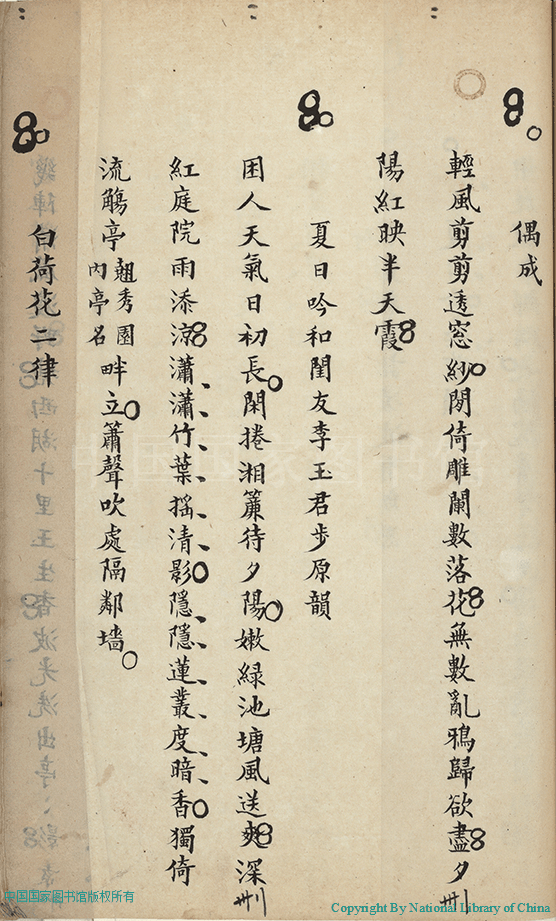 偶成
輕風剪剪透窓紗閑倚雕闌數落花無數亂鴉歸欲盡夕刪
陽紅映半天霞
夏日吟和閨友李玉君步原韻
困人天氣日初長閑捲湘簾待夕陽嫩綠池塘風送爽深刪
紅庭院雨添涼瀟瀟竹葉搖清影隱隱蓮叢度暗香獨倚
流觴亭翹秀園內亭名畔立簫聲吹處隔鄰墻
白荷花二律
中国国家图书馆
中国国家图书馆版权所有
Copyright By National Library of China